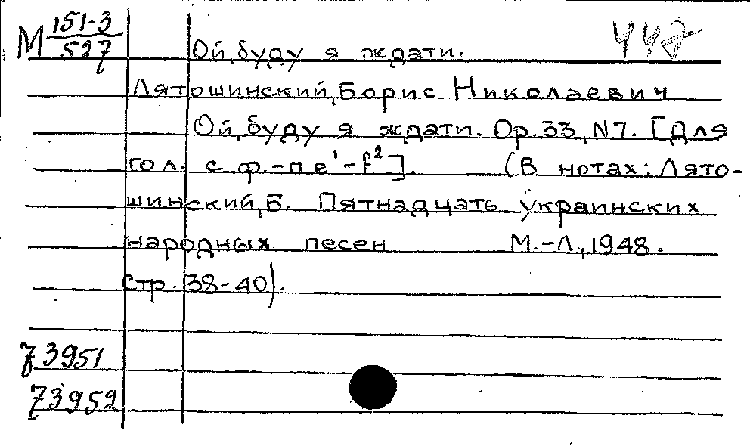 М 151-3
527
Ой, буду я ждати.
Лятошинский, Борис Николаевич
Ой, буду я ждати. Op. 33, N7. [Для
гол. с ф.-п. e¹-f²]. (В нотах: Лято-
шинский, Б. Пятнадцать украинских
народных песен М.-Л., 1948.
стр. 38-40).
73951
73952